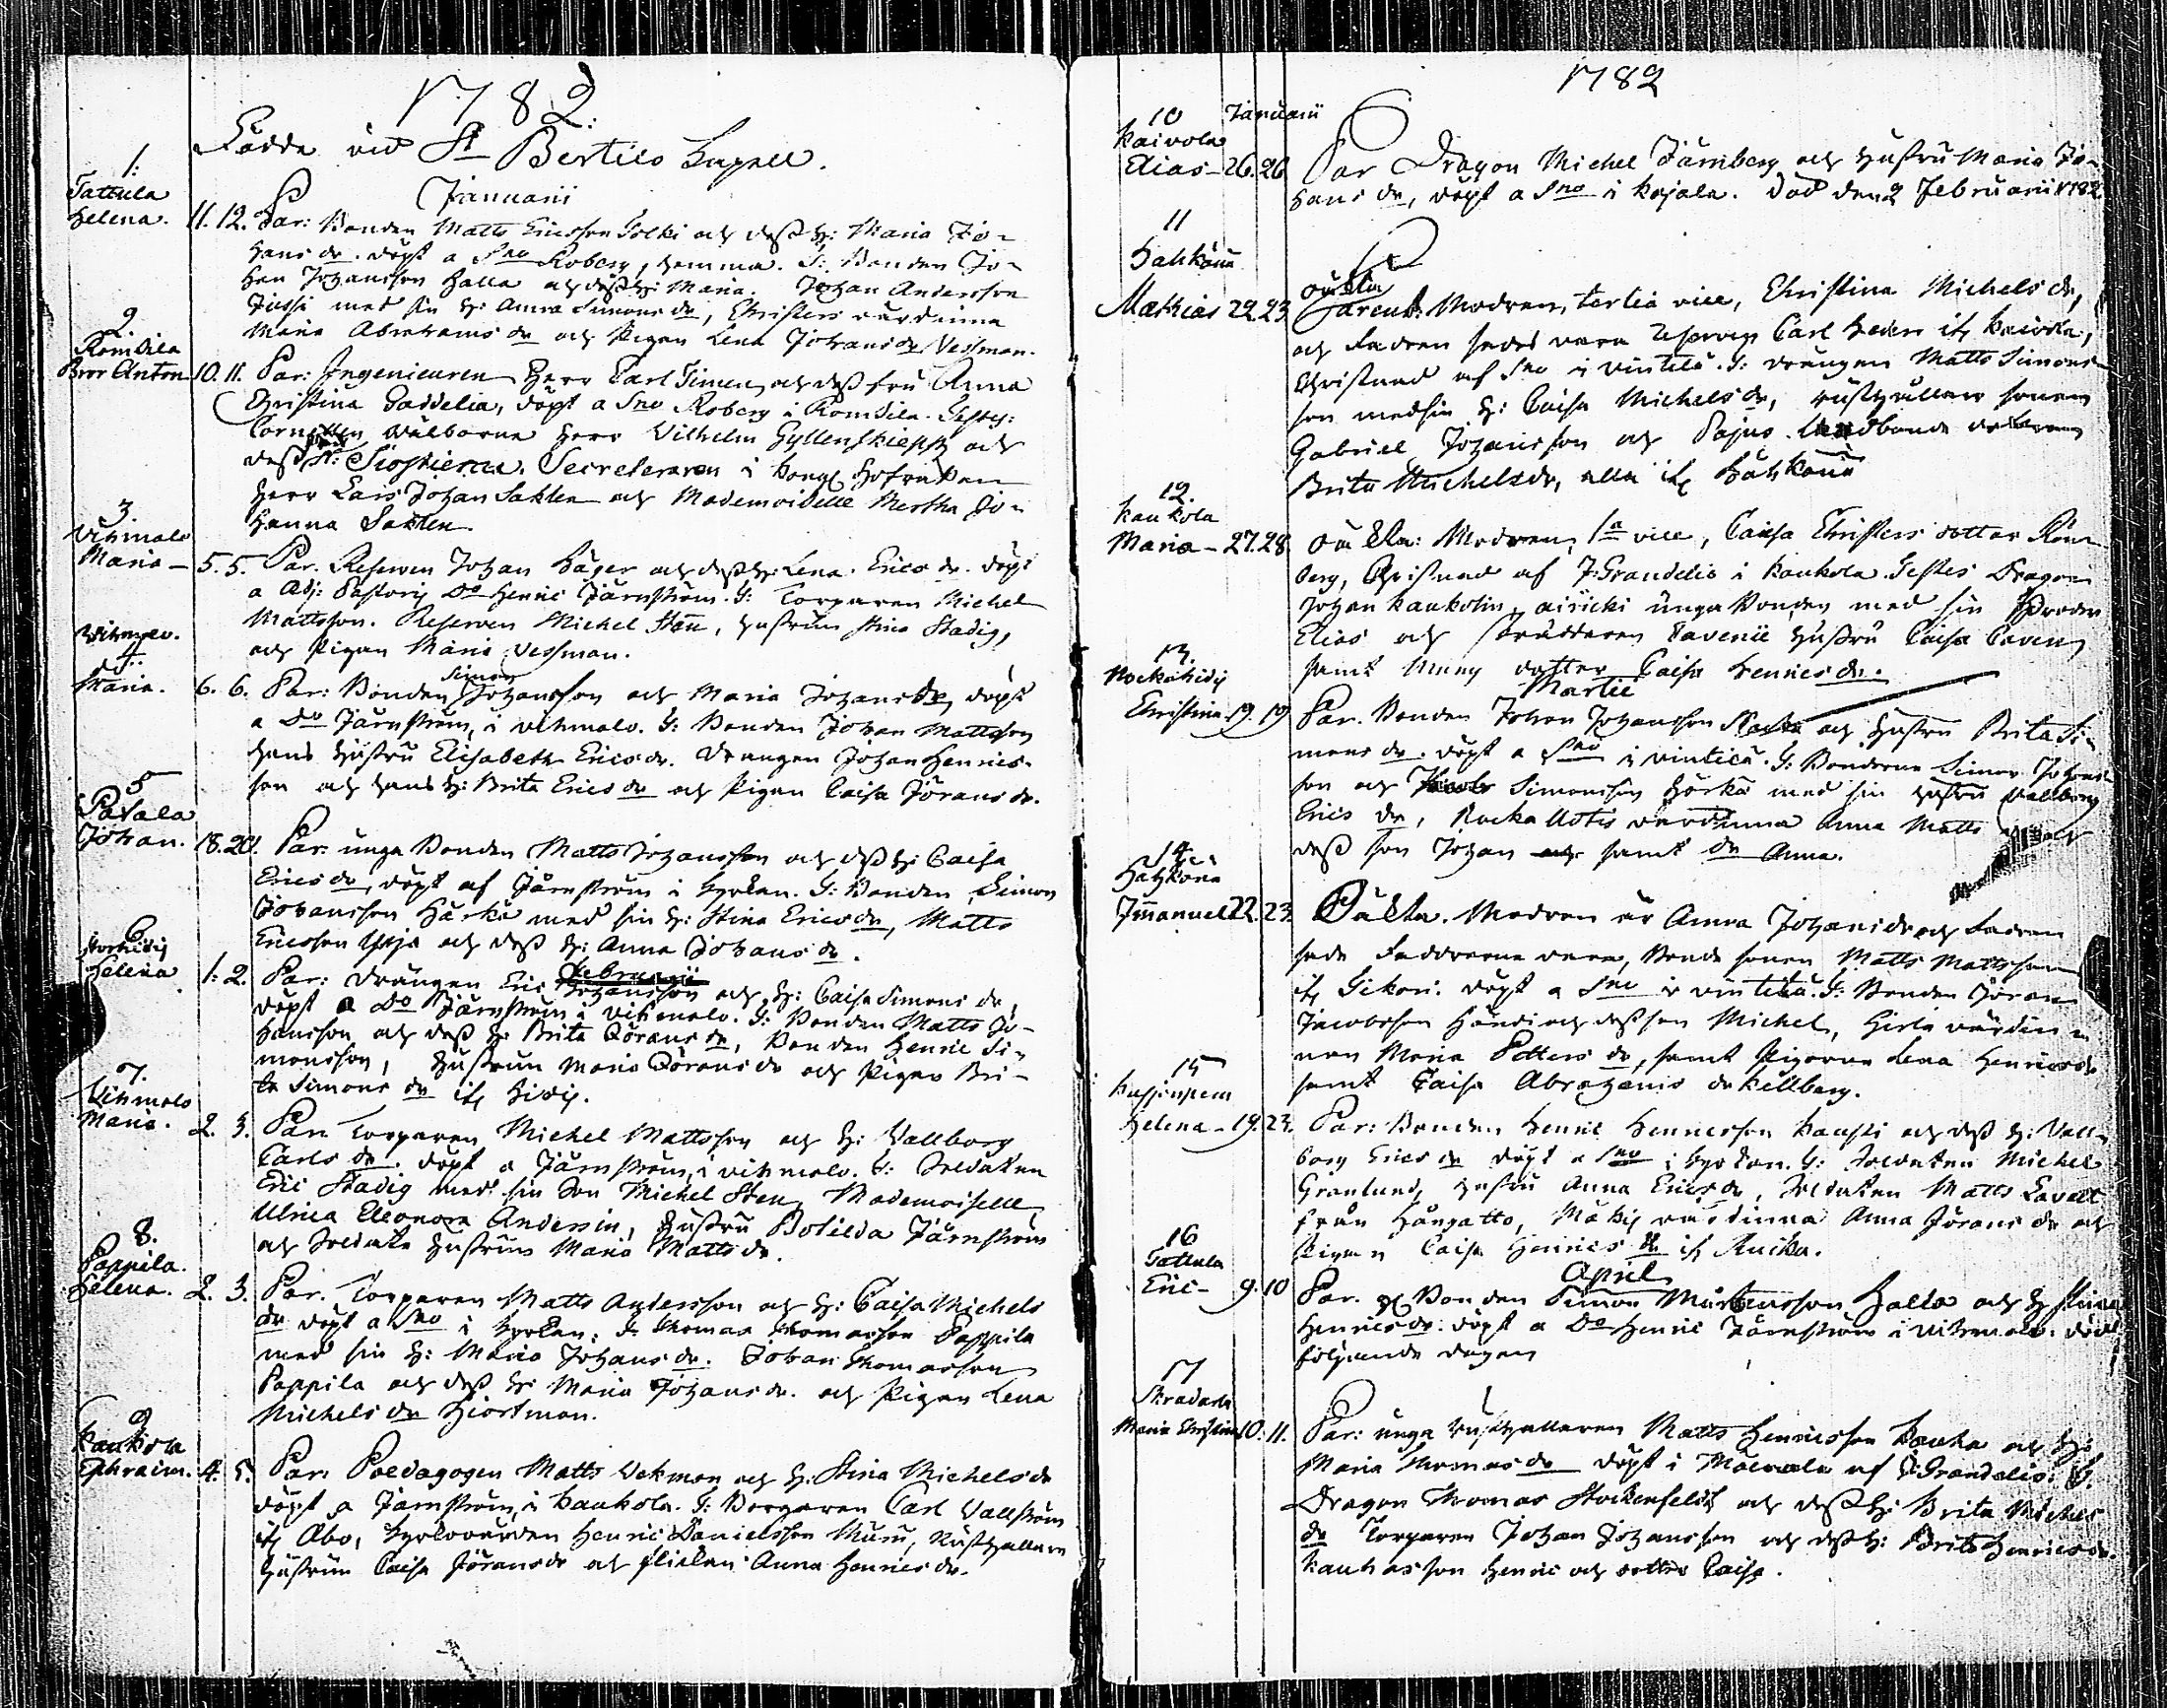 1782.
Födde vid St Bertils Capell.
Januarii
1.
Tattula
Helena. 11. 12. Par: Bonden Matts Ericsson Solki och dess H: Maria Jo-
hans dr. döpt a Sno Roberg, hemma. T: Bonden Jo-
han Johansson Halla och dess H: Maria. Johan Andersson
Jussi med sin H: Anna Simons dr, Christers värdinna
Maria Abrahams dr och Pigan Lena Johans dr Vessman.
2.
Romsila
Bror Anton 10. 11. Par: Ingenieuren Herr Carl Timen, och dess fru Anna
Christina Gaddelia, döpt a Sno Roberg i Romsila. Testes:
Cornetten Wälborne Herr Vilhelm Gyllenskiepp och
dess Fr: Siöstierna. Secreteraren i Kongl Hofrätten
Herr Lars Johan Sahlen och Mademoiselle Mertha Jo-
hanna Sahlen.
3.
Vihmalo
Maria - 5. 5. Par. Reserven Johan Häger och dess H: Lena Erics dr. döpt
a Adj: Pastoris Do Henric Järnström. T: Torparen Michel
Mattsson. Reserven Michel Stän, hustrun Stina Stadig,
och Pigan Maria Vessman.
Vihmalo.
4.
Maria. 6. 6. Par: Bonden Simon Johansson och Maria Johans dr, döpt
a Do Järnström, i Vihmalo. T: Bonden Johan Mattsson
hans hustru Elisabeth Erics dr. Drängen Johan Henrics-
son och hans H: Brita Erics dr och Pigan Caisa Jörans dr.
5
Pavala
Johan. 18. 20. Par: unga Bonden Matts Johansson och dess H: Caisa
Erics dr, döpt af Järnström i kyrkan. T: Bonden Simon
Johansson Härkä med sin H: Stina Erics dr, Matts
Ericsson Yxja och dess H: Anna Johans dr.
Februarii
6.
Helena 1. 2. Par: Drängen Eric Johansson och H: Caisa Simons dr,
döpt a Do Järnström i Vihmalo. T: Bonden Matts Jo-
hansson och dess H: Brita Jörans dr, Bonden Henric Si-
monsson, hustrun Maria Jörans dr och Pigan Bri-
ta Simons dr if. Hidis.
7.
Vihmalo
Maria. 2. 3. Par. Torparen Michel Mattsson och H: Vallborg
Carls dr. döpt a Järnström, i Vihmalo. T: Soldaten
Eric Stadig med sin Son Michel Sten, Mademoiselle
Ulrica Eleonora Anderssin, hustru Botilda Järnström
och Soldate hustrun Maria Matts dr.
8.
Pappila.
Helena. 2. 3. Par. Torparen Matts Andersson och H: Caisa Michels
dr döpt a Sno i kyrkan. T: Thomas Thomasson Pappila
med sin H: Maria Johans dr. Johan Thomasson
Pappila och dess H: Maria Johans dr. och Pigan Lena
Michels dr Hiortman.
9
Kaukola
Ephraim. 4. 5. Par. Poedagogen Matts Vekman och H: Stina Michels dr
döpt a Järnström, i Kaukola. T: Borgaren Carl Vallström
if. Åbo, kyrkovärden Henric Danielsson Muru, Rusthållare
hustrun Caisa Jörans dr och flickan Anna Henrics dr.
1782
Januarii
10
Kaivola
Elias - 26. 26 Par Dragon Michel Järnberg och hustru Maria Jo-
hans dr, döpt a Sno i Kojala. Död den 2 Februarii 1782.
11
Hahkana
Mathias 22. 23 oäkta
Parent: Modren, tertia vice, Christina Michels dr,
och Fadren sades vara Reserven Carl Heder if. Kaivola,
Christnad af Sno i Vintelä. T: drängen Matts Simons-
son med sin H: Caisa Michels dr, rusthållare sonen
Gabriel Johansson och Pajus Landbonde dottren
Brita Michels dr, alla if. Hahkana
12.
Kaukola
Maria - 27. 28 Oäkta: Modren, 1a vice, Caisa Christers dotter Röm-
berg, Christnad af J: Grandelio i Kaukola. Testes Dragon
Johan Kaukolin, äiricki unga Bonden med sin broder
Elias och skräddaren Davenii hustru Caisa Caven,
samt Muny dotter Caisa Henrics dr.
Martii
13.
Christina 19. 19 Par. Bonden Johan Johansson och hustru Brita Si-
mons dr. döpt a Sno i Vintelä. T: Bönderne Simon Johans-
son och Simonsson Härkä med sin hustru Vallborg
Erics dr, värdinna Anna Matts
dess son Johan samt dr Anna.
14.
Hahkana
Immanuel 22. 23 Oäkta. Modren är Anna Johans dr och Fadren
sade Faddrarna vara, Bonde sonen Matts Mattsson
if. Sikari. döpt a Sno i Vintelä. T: Bonden Jöran
Jacobsson Händi och dess son Michel, Girla värdin-
nan Maria Petters dr, samt Pigorna Lena Henrics dr
samt Caisa Abrahams dr Kellberg.
15
Helena - 19. 23. Par: Bonden Henric Henricsson Kauski och dess H: Vall-
borg Erics dr döpt a Sno i kyrkan. T: Soldaten Michel
Granlund, hustru Anna Erics dr, Soldaten Matts Lavett
från Hångatto, Mäkis värdinna Anna Jörans dr och
Pigan Caisa Henrics dr if. Kuika.
April
16
Tattula
Eric - 9. 10 Par. Bonden Simon Mårtensson Halla och H: Stina
Henrics dr. döpt a Do Henric Järnström i Vihmalo. död
följande dagen
17
Maria Christina 10. 11. Par: unga Rusthållaren Matts Henricsson Kauka och H:
Maria Thomas dr döpt i Mälvola af J: Grandelio. T:
Dragon Thomas Stockenfeldt och dess H: Brita Michels
dr Torparen Johan Johansson och dess H: Brita Henrics dr.
Kauhasson Henric och dotter Caisa.